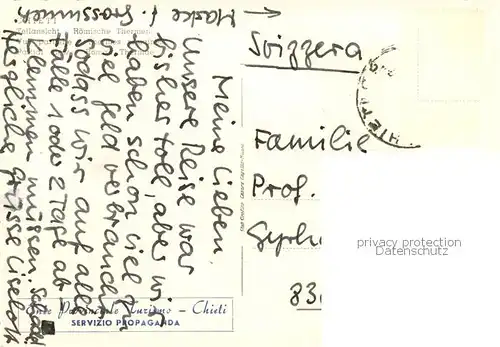 CHIETI
Teilansicht - Römische Thermen
Meine Lieben.
Unsere Reise war
bisher toll, aber wir
haben schon viel zu
viel Geld verbraucht
sodass wir auf alle
Fälle 1 oder 2 Tage ab
klemmen müssen. Schade!
Herzliche Grüsse Liselott
Maske f. Grossmutter.
Svizzera
Familie
Prof.
83
Ente Provinciale Turismo - Chieti
SERVIZIO PROPAGANDA
privacy protection
Datenschutz